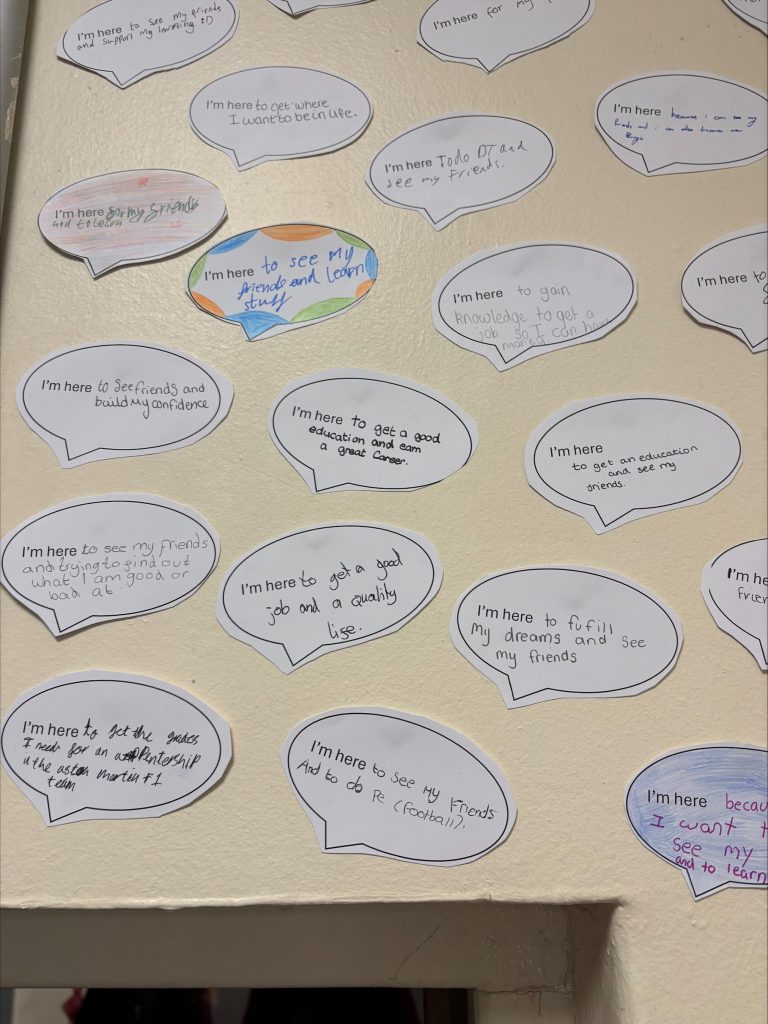 I'm here to see my friends
and support my learning :)
I'm here for my
I'm here to get where
I want to be in life.
I'm here To do DT and
see my friends.
I'm here because i can see my
friends and i can also discover new
things
I'm here for my friends
and to learn
I'm here to see my
friends and learn
stuff
I'm here to gain
knowledge to get a
job so I can have
money
I'm here to
I'm here to see friends and
build My confidence
I'm here to get a good
education and earn
a great Career.
I'm here
to get an education
and see my
friends.
I'm here to see my friends
and trying to find out
what I am good or
bad at.
I'm here to get a good
job and a quality
life.
I'm here to fufill
My dreams and see
my friends
I'm he
frien
I'm here to get the grades
I need for an
in the aston martin F1
team
I'm here to see My Friends
And to do Pe (Football).
I'm here becau
I want t
see my
and to learn